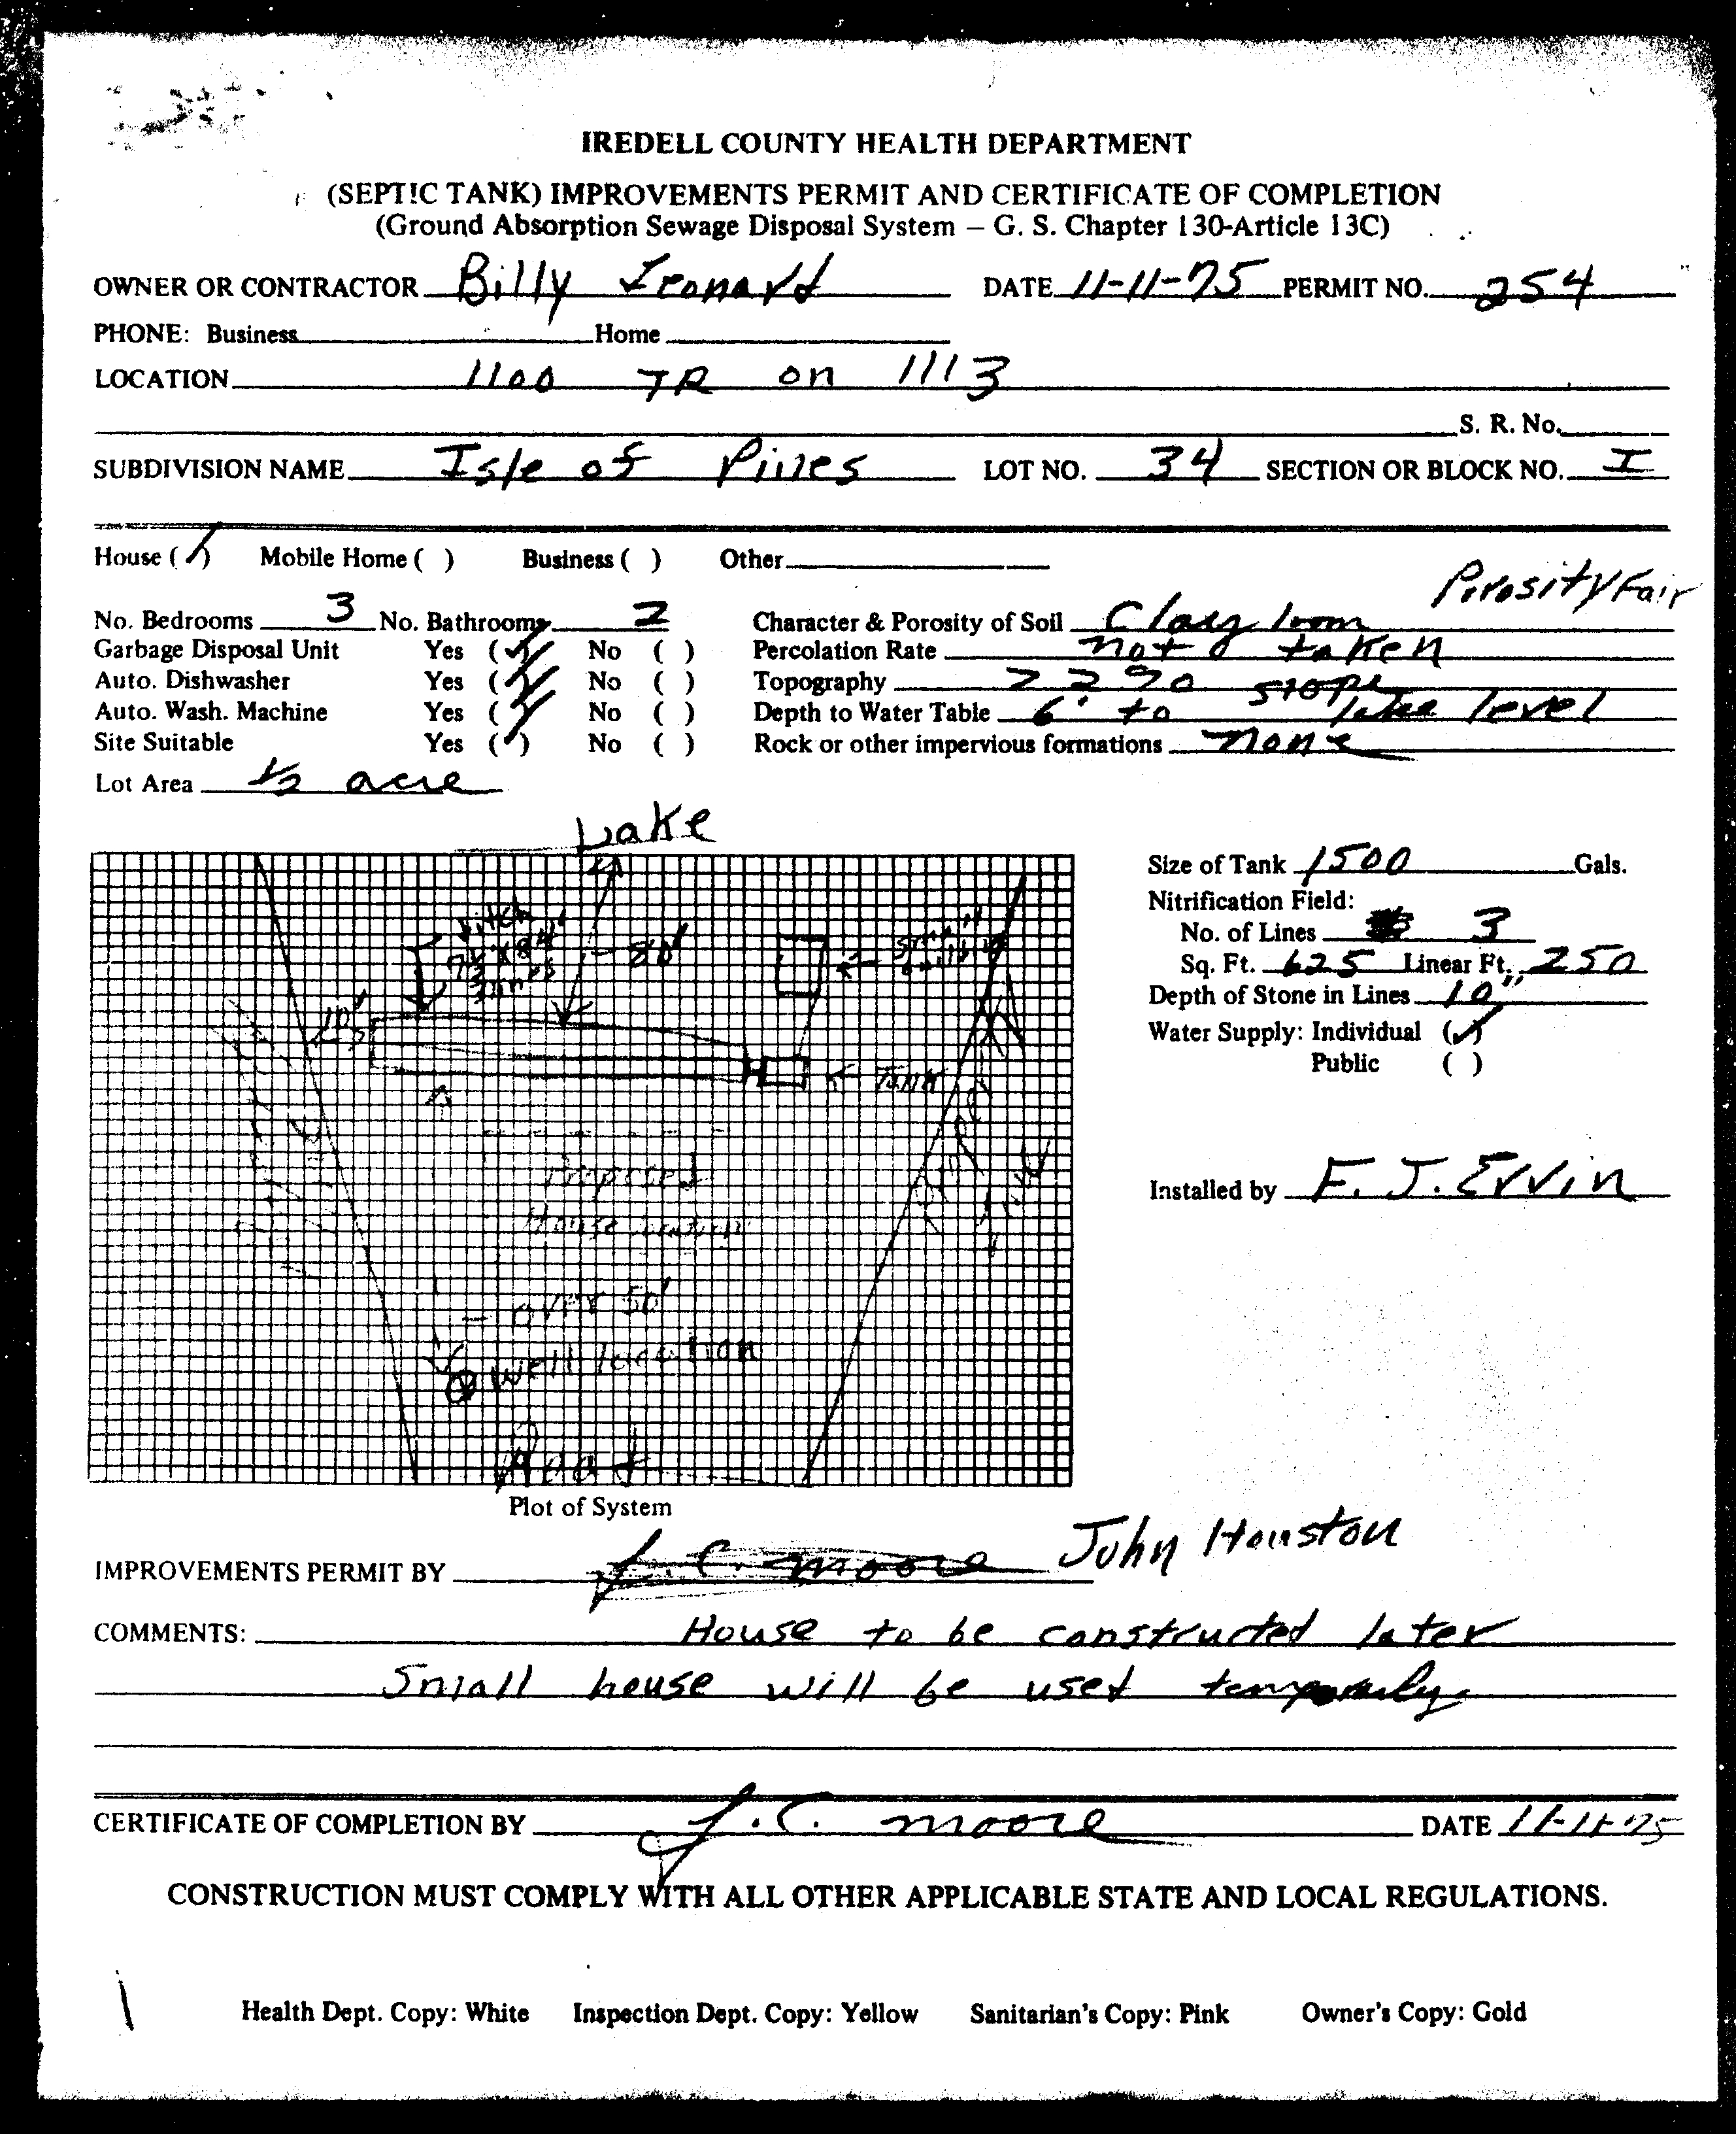 IREDELL COUNTY HEALTH DEPARTMENT
(SEPTIC TANK) IMPROVEMENTS PERMIT AND CERTIFICATE OF COMPLETION
(Ground Absorption Sewage Disposal System – G. S. Chapter 130-Article 13C)
OWNER OR CONTRACTOR Billy Leonard DATE 11-11-75 PERMIT NO. 254
PHONE: Business Home
LOCATION 1100 TR on 1113
S. R. No.
SUBDIVISION NAME Isle of Pines LOT NO. 34 SECTION OR BLOCK NO. I
House (✓) Mobile Home ( ) Business ( ) Other
Porosity Fair
No. Bedrooms 3 No. Bathrooms 2 Character & Porosity of Soil Clay loam
Garbage Disposal Unit Yes (✓) No ( ) Percolation Rate not taken
Auto. Dishwasher Yes (✓) No ( ) Topography slope
Auto. Wash. Machine Yes (✓) No ( ) Depth to Water Table 6' to lake level
Site Suitable Yes (✓) No ( ) Rock or other impervious formations none
Lot Area ½ acre
Lake
Size of Tank 1500 Gals.
Nitrification Field:
No. of Lines 3
Sq. Ft. 625 Linear Ft. 250
Depth of Stone in Lines 10"
Water Supply: Individual (✓)
Public ( )
80'
10'
← Tank
Proposed
House location
Installed by F. J. Ervin
– over 50'
well location
Road
Plot of System
IMPROVEMENTS PERMIT BY J. C. Moore John Houston
COMMENTS: House to be constructed later
Small house will be used temporarily
CERTIFICATE OF COMPLETION BY J. C. Moore DATE 11-11-75
CONSTRUCTION MUST COMPLY WITH ALL OTHER APPLICABLE STATE AND LOCAL REGULATIONS.
Health Dept. Copy: White Inspection Dept. Copy: Yellow Sanitarian's Copy: Pink Owner's Copy: Gold